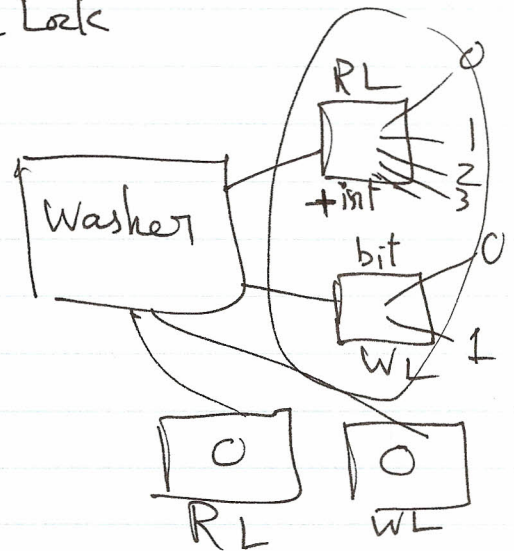 Lock
RL
0
1
2
3
+int
Washer
bit
0
1
WL
0
0
RL
WL